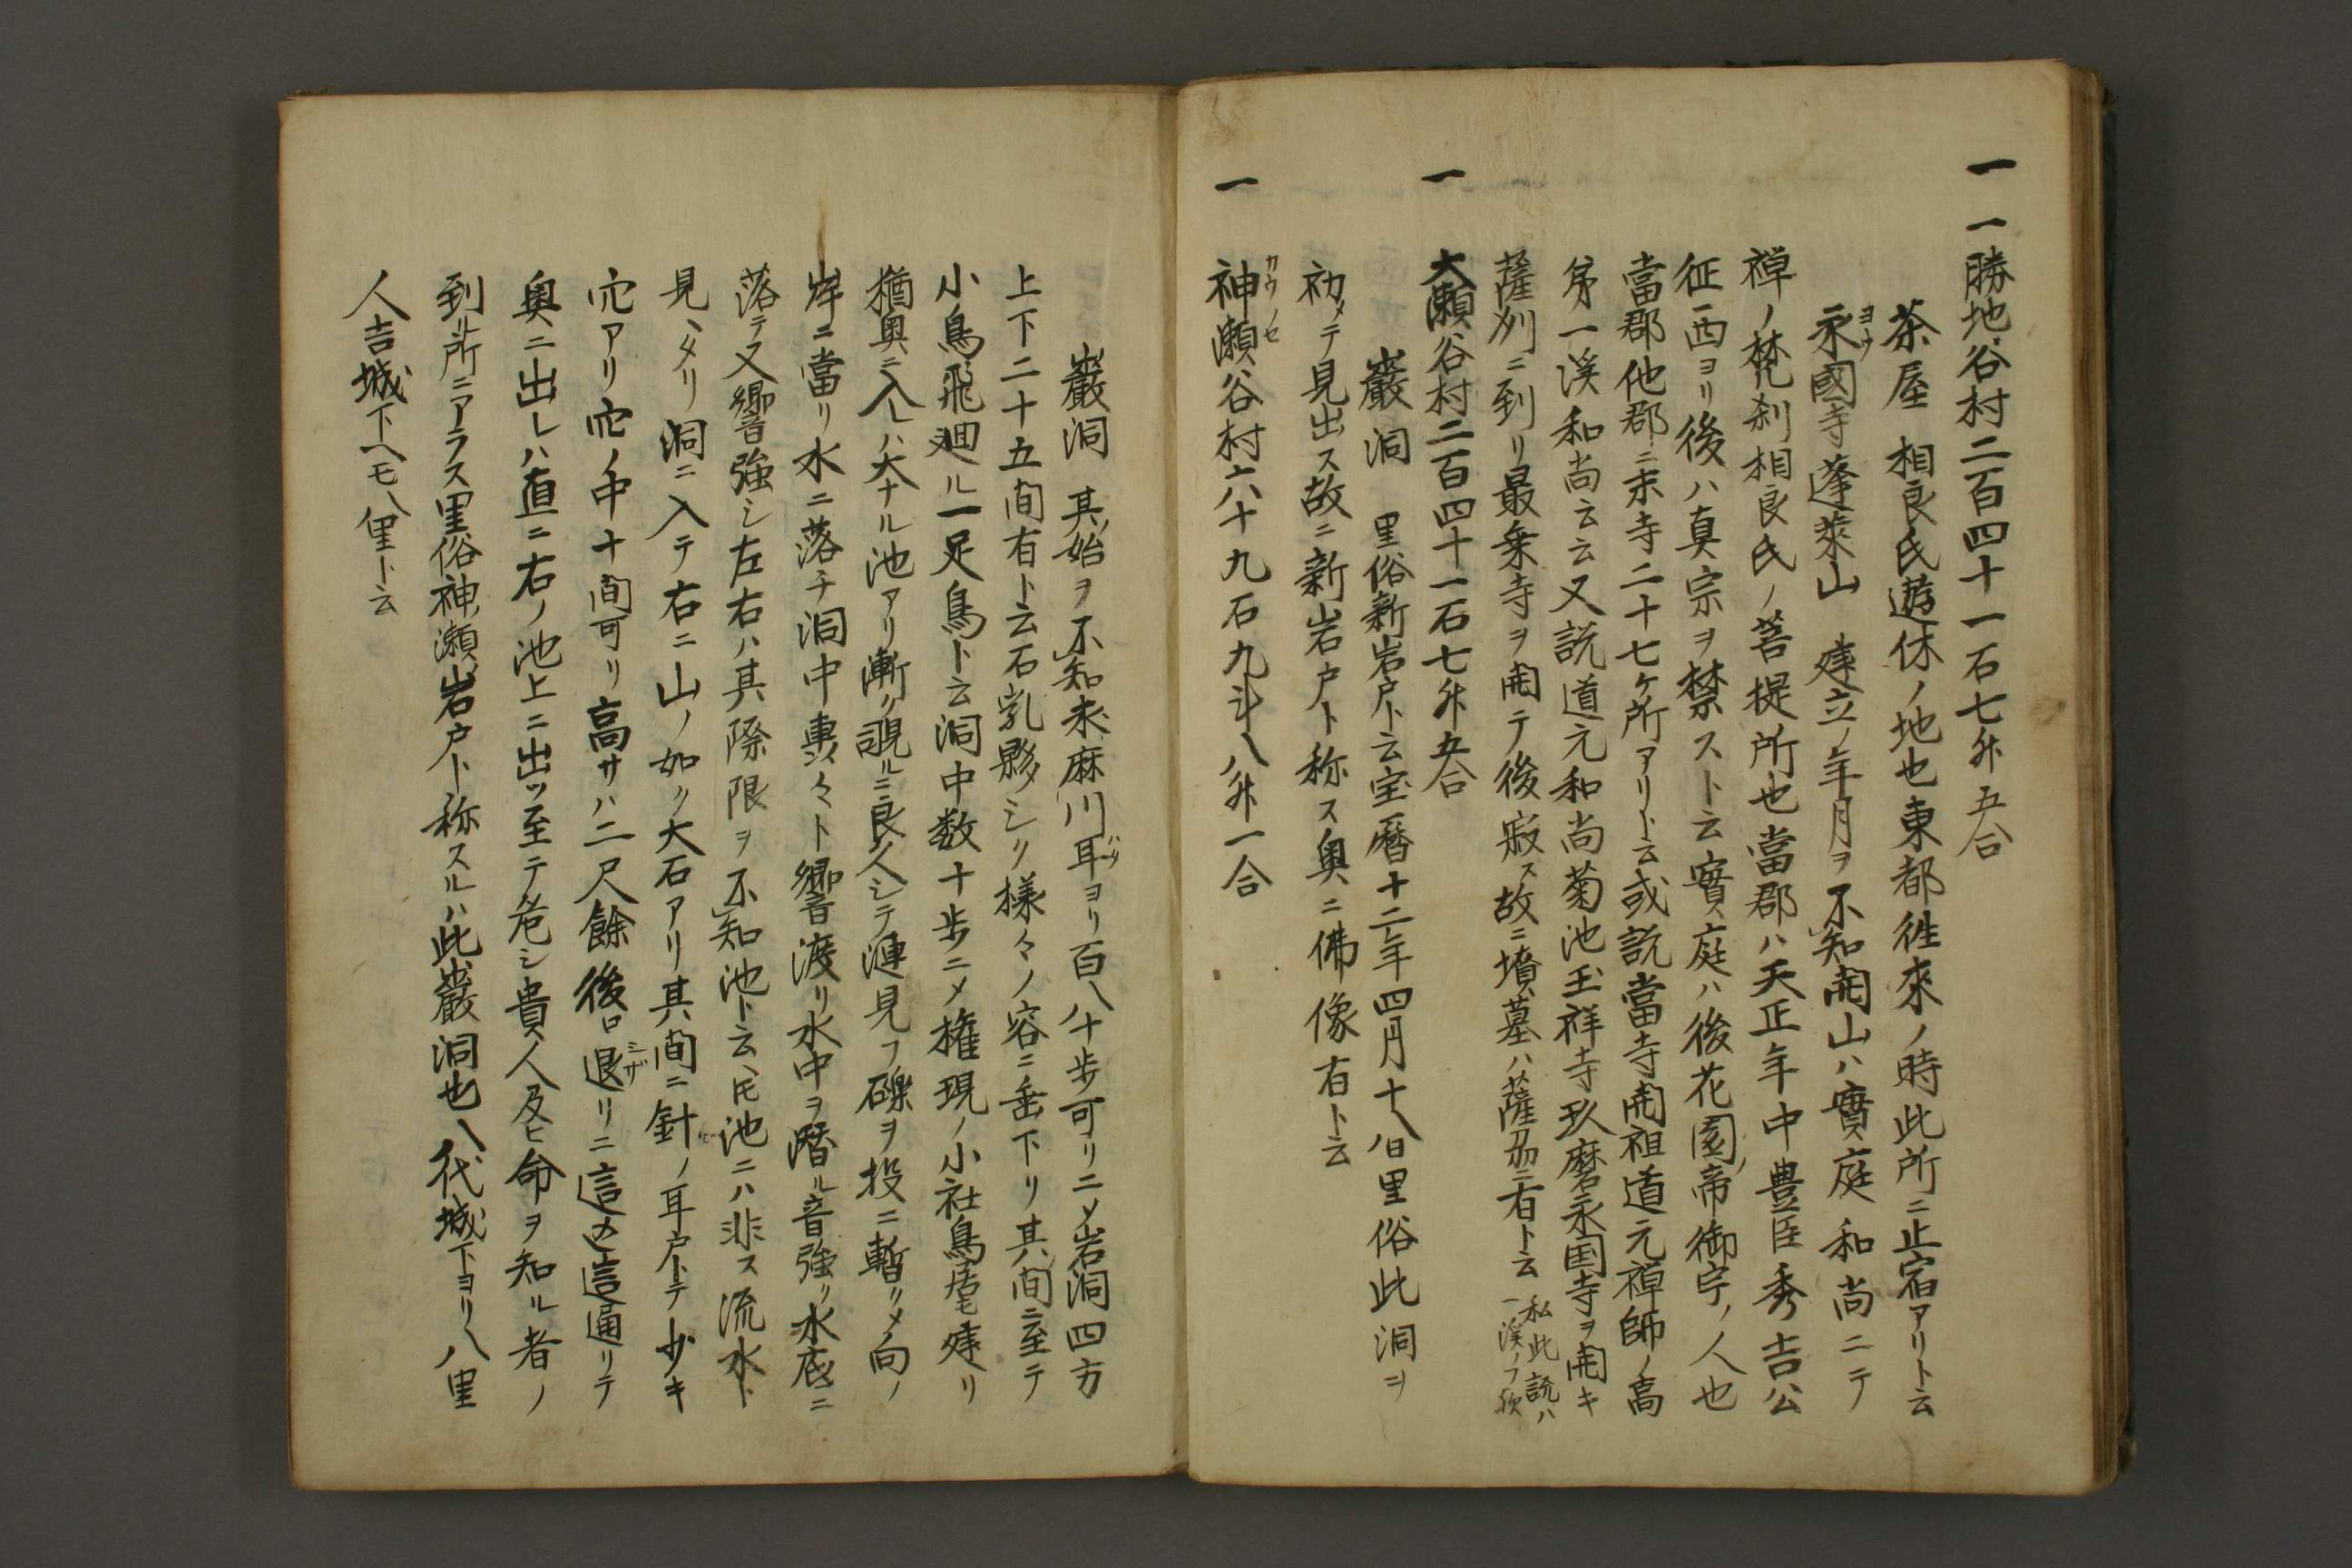 一 一勝地谷村二百四十一石七舛五合
茶屋 相良氏遊休ノ地也東都徃來ノ時此所ニ止宿アリト云
永國寺蓬萊山 建立ノ年月ヲ不知開山ハ實庭和尚ニテ
ヨウ
禅ノ梵刹相良氏ノ菩提所也當郡ハ天正年中豊臣秀吉公
征西ヨリ後ハ真宗ヲ禁スト云實庭ハ後花園ノ帝御宇ノ人也
當郡他郡ニ末寺二十七ケ所アリト云或説當寺開祖道元禅師ノ高
弟一溪和尚云云又説道元和尚菊池玉祥寺玖磨永国寺ヲ開キ
薩刕ニ到リ最乗寺ヲ開テ後寂ス故ニ墳墓ハ薩刕ニ有ト云 私此説ハ
一溪ノフ欤
一 大瀬谷村二百四十一石七舛五合
巖洞 里俗新岩戸ト云宝暦十二年四月十八日里俗此洞ヲ
初メテ見出ス故ニ新岩戸ト称ス奥ニ佛像有ト云
一 神瀬谷村六十九石九斗八舛一合
カウノセ
巖洞 其始ヲ不知求麻川耳ヨリ百八十歩可リニメ岩洞四方
バタ
上下二十五間有ト云石乳夥シリ様々ノ容ニ垂下リ其間ニ至テ
小鳥飛廻ル一足鳥ト云洞中数十歩ニメ権現ノ小社鳥居モ建リ
猶奥ニ入レハ大ナル池アリ漸ク覗ルニ良久シテ漣見フ礫ヲ投ニ暫クメ向ノ
岸ニ當リ水ニ落チ洞中轟々ト響渡リ水中ヲ潜ル音強ク水底ニ
落テ又響強シ左右ハ其際限ヲ不知池ト云ヘ𪜈池ニハ非ス流水ト
見ヘメリ洞ニ入テ右ニ山ノ如ク大石アリ其間ニ針ノ耳戸トテ少キ
穴アリ穴ノ中十間可リ高サハ二尺餘後ロ退リニ這込這通リテ
ミザ
奥ニ出レハ直ニ右ノ池上ニ出ツ至テ危シ貴人及ヒ命ヲ知ル者ノ
到ル所ニアラス里俗神瀬岩戸ト称スルハ此巖洞也八代城下ヨリ八里
人吉城下ヘモ八里ト云